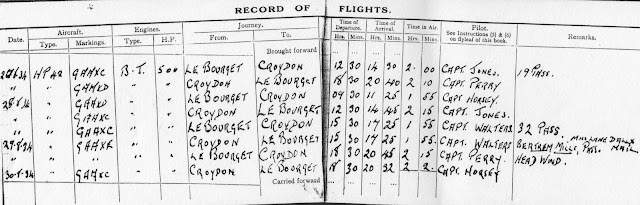 RECORD OF FLIGHTS.
Date. Aircraft. Engines. Journey. Time of Departure. Time of Arrival. Time in Air. Pilot. See Instructions (5) & (6) on flyleaf of this book. Remarks.
Type. Markings. Type. H.P. From. To. Hrs. Mins. Hrs. Mins. Hrs. Mins.
Brought forward
HP42 GAAXC B.T. 500 LE BOURGET CROYDON 12 30 14 30 2 00 CAPT. JONES. 19 PASS.
" " " " " CROYDON LE BOURGET 18 30 20 40 2 10 CAPT PERRY
28.8.34 " " " LE BOURGET CROYDON 09 30 11 25 1 55 CAPT. HORSEY.
" " GAAXC " " CROYDON LE BOURGET 12 30 14 45 2 15 CAPT. JONES.
" " GAAXC " " LE BOURGET CROYDON 15 30 17 25 1 55 CAPT. WALTERS 32 PASS.
29.8.34 " " " CROYDON LE BOURGET 15 30 17 25 1 55 CAPT. WALTERS BERTRAM MILLS, PASS. MAIL
" " " " " LE BOURGET CROYDON 18 30 20 45 2 15 CAPT. PERRY. HEAD WIND.
30.8.34 " " " CROYDON LE BOURGET 18 30 20 32 2 2 CAPT. HORSEY
Carried forward